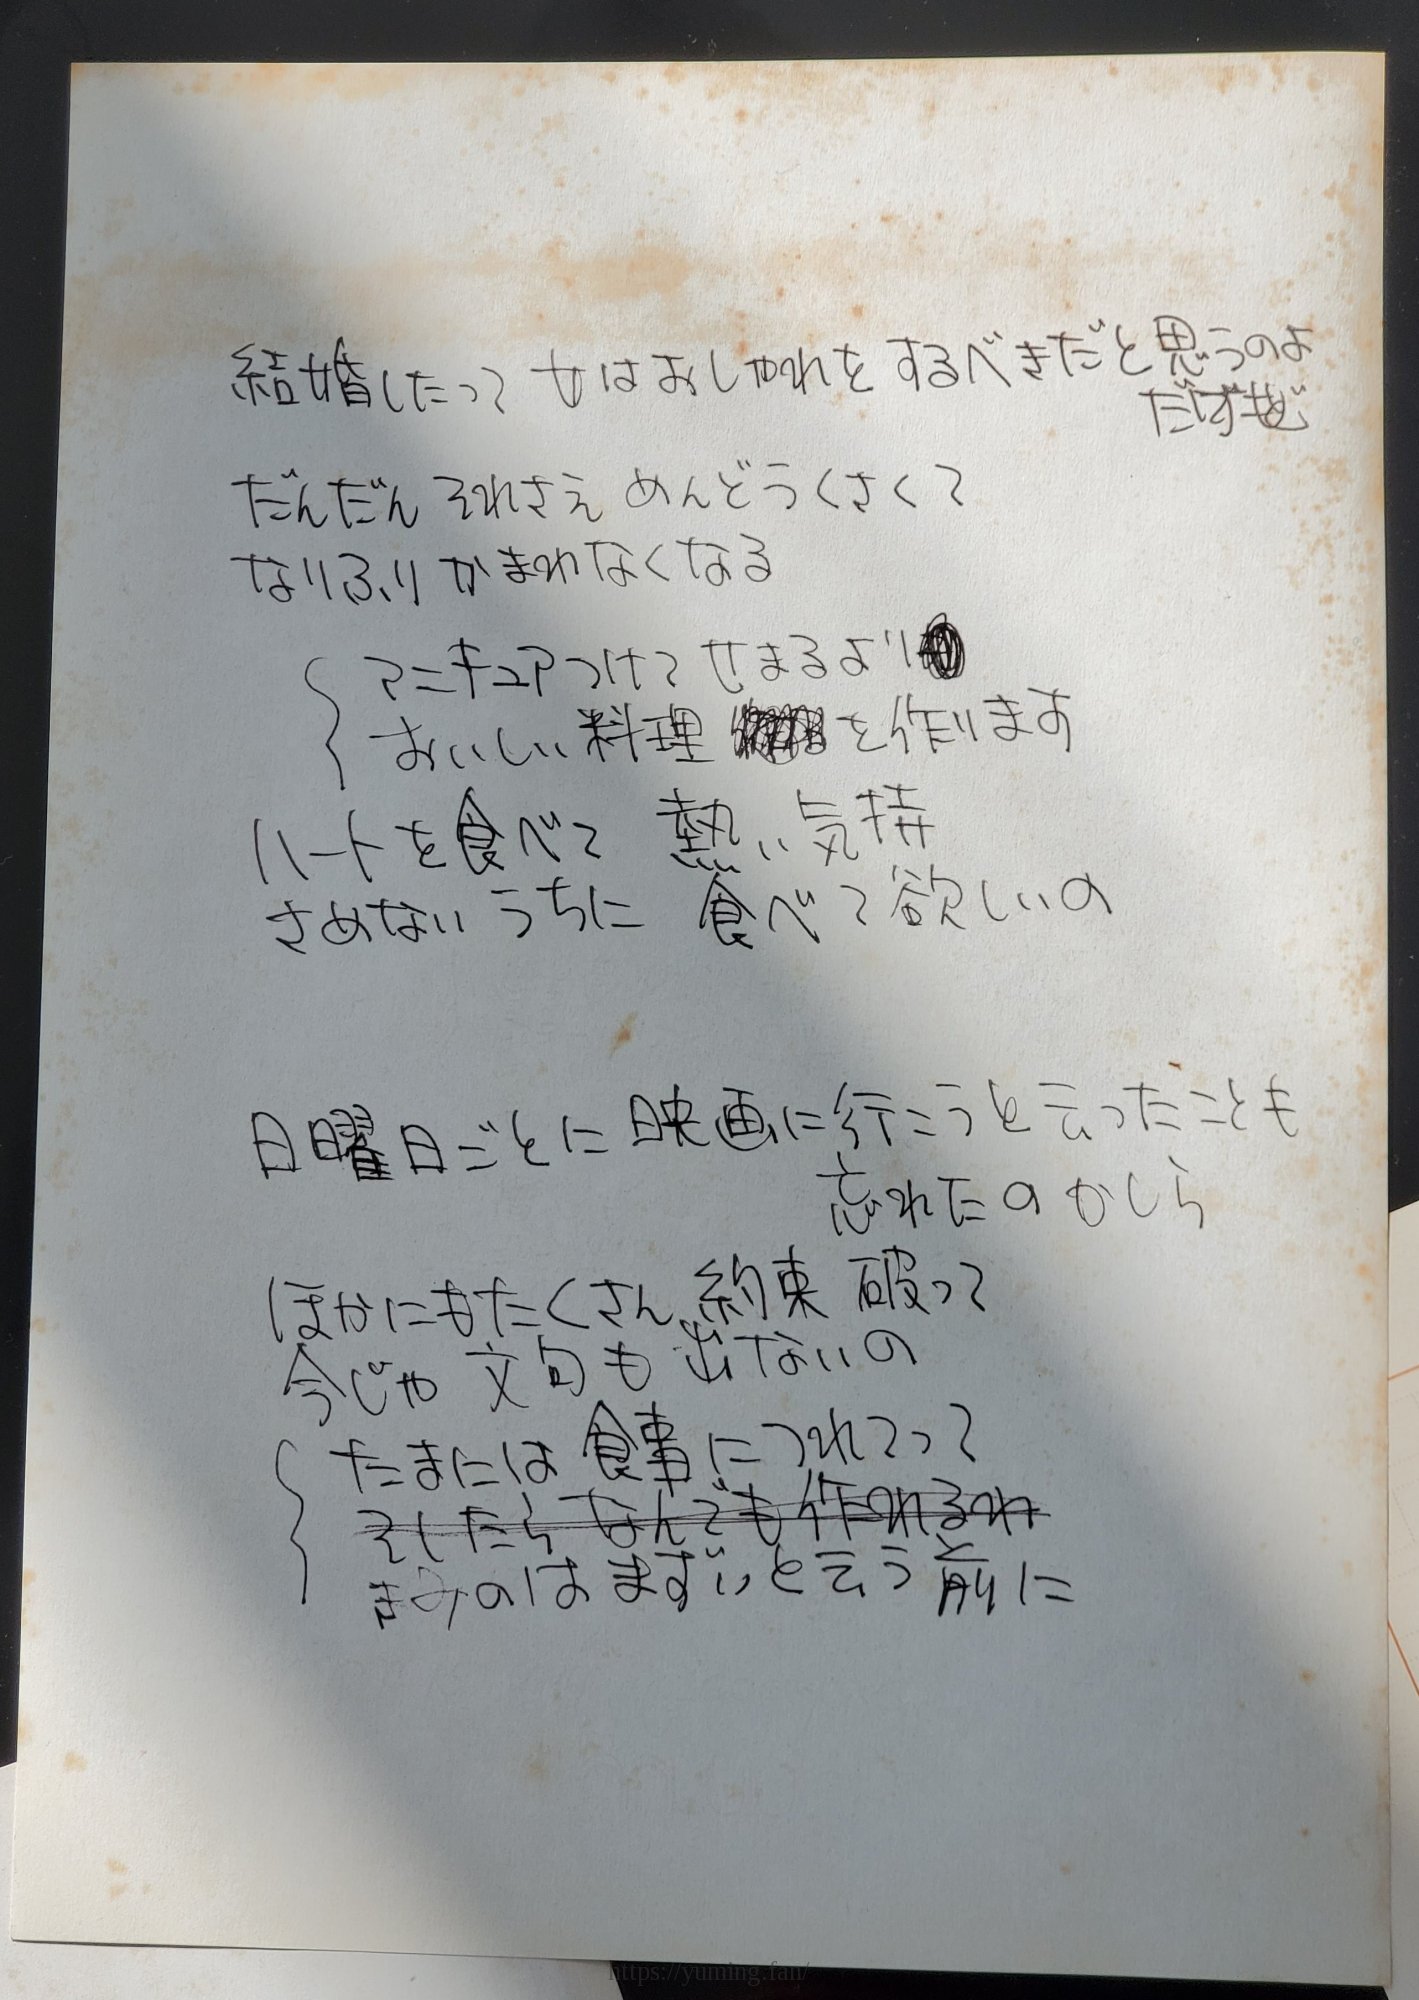 結婚したって 女はおしゃれをするべきだと思うのよ
だけども
だんだん それさえ めんどうくさくて
なりふり かまわなくなる
マニキュアつけて せまるより
おいしい料理 を作ります
ハートを食べて 熱い気持
さめないうちに 食べて欲しいの
日曜日ごとに 映画に行こうと云ったことも
忘れたのかしら
ほかにもたくさん 約束 破って
今じゃ 文句も 出ないの
たまには 食事につれてって
そしたら なんでも 作れるわ
きみのはまずいと云う前に
https://yuming.fan/